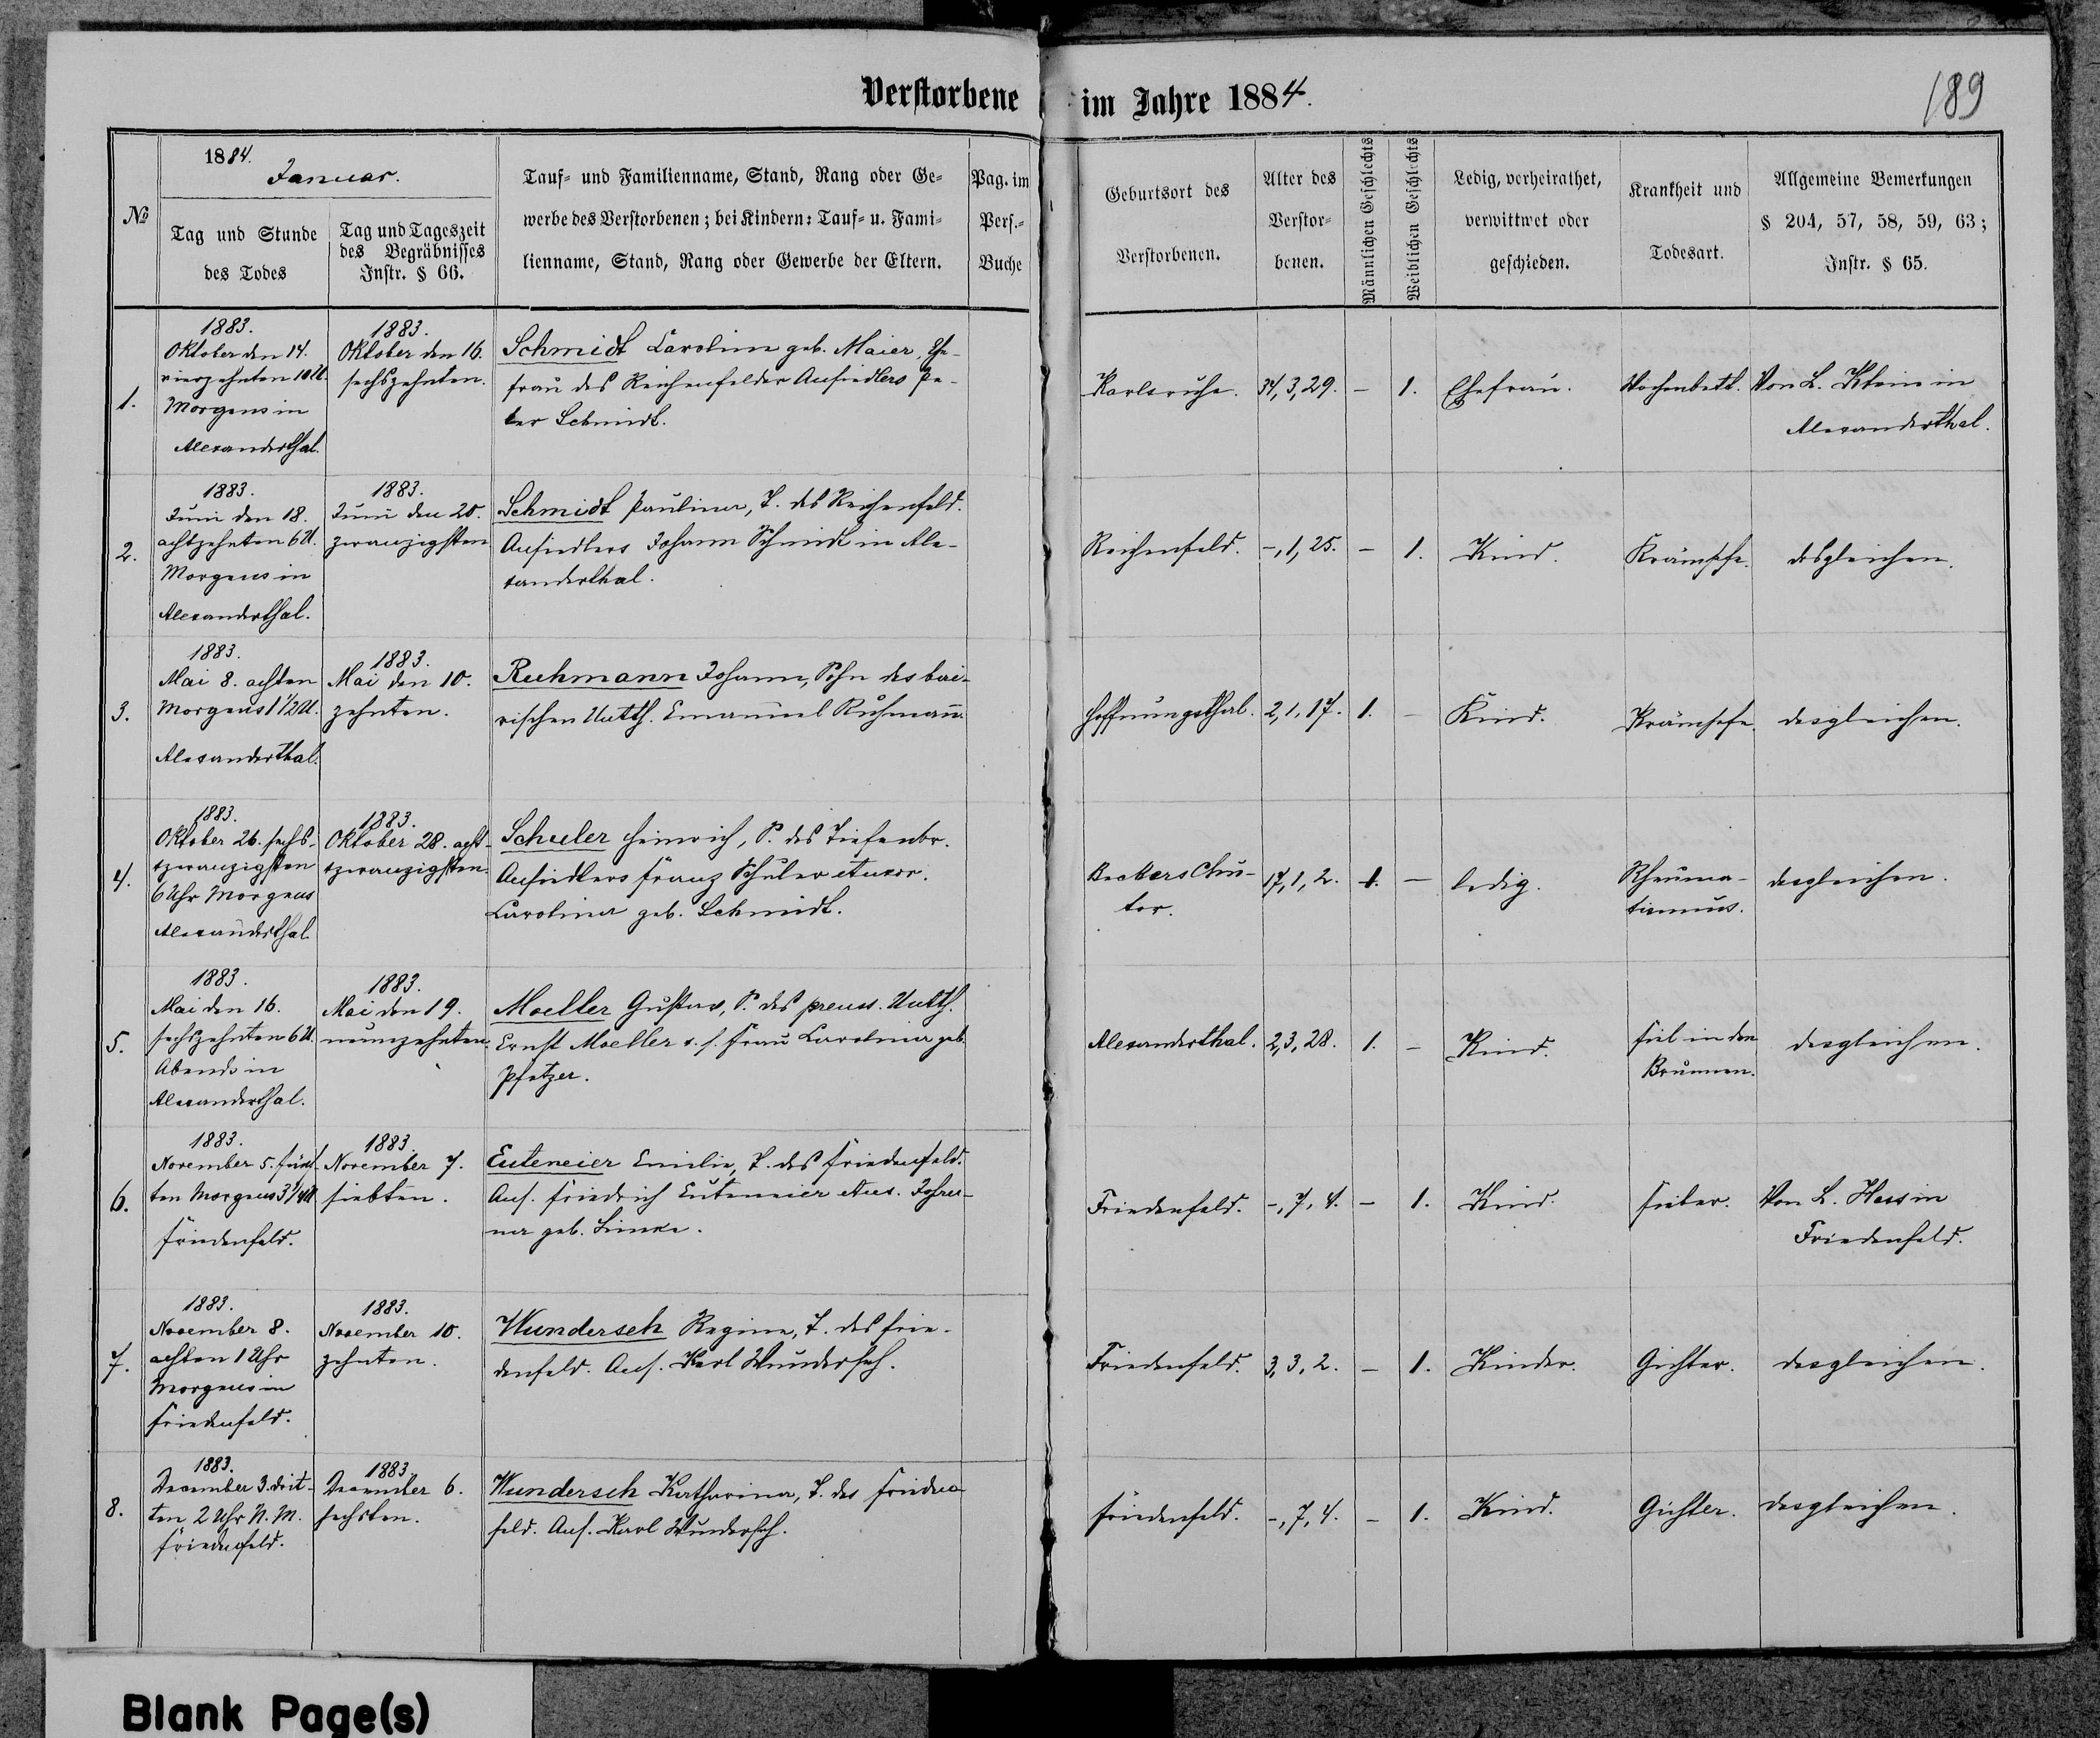 Verstorbene im Jahre 1884.
189
№
1884.
Januar.
Tag und Stunde
des Todes
Tag und Tageszeit
des Begräbnisses
Instr. § 66.
Tauf- und Familienname, Stand, Rang oder Ge-
werbe des Verstorbenen; bei Kindern: Tauf- u. Fami-
lienname, Stand, Rang oder Gewerbe der Eltern.
Pag. im
Pers.-
Buche
Geburtsort des
Verstorbenen.
Alter des
Verstor-
benen.
Männlichen Geschlechts
Weiblichen Geschlechts
Ledig, verheirathet,
verwittwet oder
geschieden.
Krankheit und
Todesart.
Allgemeine Bemerkungen
§ 204, 57, 58, 59, 63;
Instr. § 65.
1.
1883.
Oktober den 14.
vierzehnten 10 U.
Morgens in
Alexanderthal.
1883.
Oktober den 16.
sechszehnten.
Schmidt Carolina geb. Maier, Ehe-
frau des Reichenfelder Ansiedlers Pe-
ter Schmidt.
Karlsruhe.
34, 3, 29.
–
1.
Ehefrau.
Wochenbett.
Von L. Klein in
Alexanderthal.
2.
1883.
Juni den 18.
achtzehnten 6 U.
Morgens in
Alexanderthal.
1883.
Juni den 20.
zwanzigsten
Schmidt Paulina, T. des Reichenfeld.
Ansiedlers Johann Schmidt in Ale-
xanderthal.
Reichenfeld.
–, 1, 25.
–
1.
Kind.
Krämpfe.
desgleichen.
3.
1883.
Mai 8. achten
Morgens 1 1/2 U.
Alexanderthal.
1883.
Mai den 10.
zehnten.
Ruhmann Johann, Sohn des bai-
rischen Untth. Emanuel Ruhmann.
Hoffnungsthal.
2, 1, 17.
1.
–
Kind.
Krämpfe.
desgleichen.
4.
1883.
Oktober 26. sechs-
zwanzigsten
6 Uhr Morgens
Alexanderthal
1883.
Oktober 28. acht-
zwanzigsten.
Schuler Heinrich, S. des Tiefenbr.
Ansiedlers Franz Schuler et uxor.
Carolina geb. Schmidt.
Beckers Chu-
tor.
17, 1, 2.
1.
–
ledig.
Rheuma-
tismus.
desgleichen.
5.
1883.
Mai den 16.
sechszehnten 6 U.
Abends in
Alexanderthal.
1883.
Mai den 19.
neunzehnten.
Moeller Gustav, S. des preuss. Untth.
Ernst Moeller u. s. Frau Carolina geb.
Pfetzer.
Alexanderthal.
2, 3, 28.
1.
–
Kind.
fiel in den
Brunnen.
desgleichen.
6.
1883.
November 5. fünf-
ten Morgens 3 1/4 U.
Friedenfeld.
1883.
November 7.
siebten.
Euteneier Emilie, T. des Friedenfeld.
Ans. Friedrich Euteneier et ux. Johan-
na geb.
Friedenfeld.
–, 7, 4.
–
1.
Kind.
Fieber.
Von L. Hess in
Friedenfeld.
7.
1883.
November 8.
achten 1 Uhr
Morgens in
Friedenfeld.
1883.
November 10.
zehnten.
Wundersch Regine, T. des Frie-
denfeld. Ans. Karl Wundersch.
Friedenfeld.
3, 3, 2.
–
1.
Kinder.
Gichter.
desgleichen.
8.
1883.
December 3. drit-
ten 2 Uhr N. M.
Friedenfeld.
1883.
December 6.
sechsten.
Wundersch Katharina, T. des Frieden-
feld. Ans. Karl Wundersch.
Friedenfeld.
–, 7, 4.
–
1.
Kind.
Gichter.
desgleichen.
Blank Page(s)